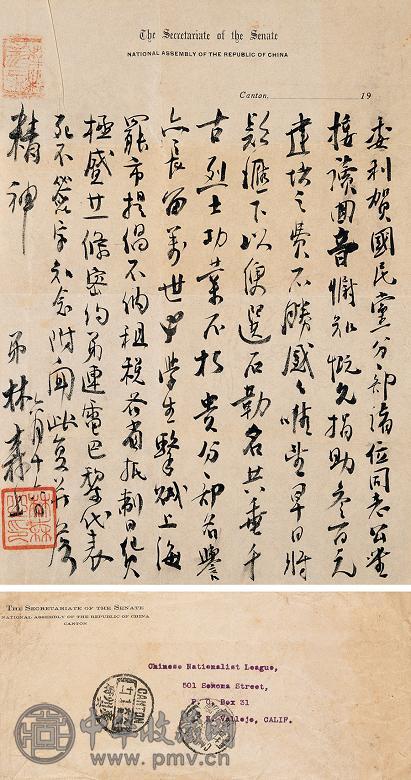 The Secretariate of the Senate
NATIONAL ASSEMBLY OF THE REPUBLIC OF CHINA
Canton, 19
委利賀國民黨分部諸位同志公鑒
接讀回音慨允捐助叁百元
建墳之費不勝感々唯望早日將
款擲下以便選石勒名共垂千
古烈士功業不朽貴分部名譽
亦長留萬世學生擊賊上海
罷市提倡不納租稅各省抵制日貨
極盛廿一條密約弟連電巴黎代表
死不簽字知念附聞此复並候
精神
弟林森上
六月十日
THE SECRETARIATE OF THE SENATE
NATIONAL ASSEMBLY OF THE REPUBLIC OF CHINA
CANTON
Chinese Nationalist League,
501 Sonoma Street,
P. O. Box 31
Vallejo, CALIF.
CANTON
中华收藏网
www.pmv.cn